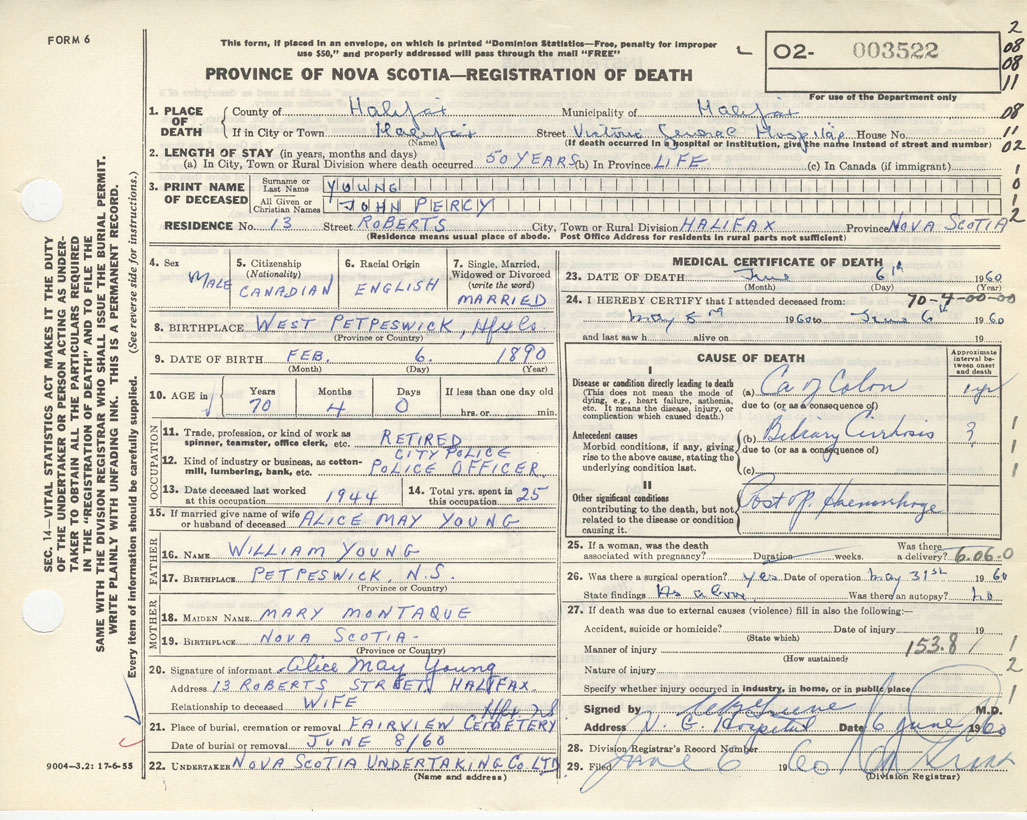 FORM 6
This form, if placed in an envelope, on which is printed "Dominion Statistics—Free, penalty for improper
use $50," and properly addressed will pass through the mail "FREE"
PROVINCE OF NOVA SCOTIA—REGISTRATION OF DEATH
O2- 003522
For use of the Department only
2
08
08
11
08
11
02
1
0
1
2
1. PLACE OF DEATH
County of Halifax Municipality of Halifax
If in City or Town Halifax Street Victoria General Hospital House No.
(Name) (If death occurred in a hospital or institution, give the name instead of street and number)
2. LENGTH OF STAY (in years, months and days)
(a) In City, Town or Rural Division where death occurred 50 YEARS (b) In Province LIFE (c) In Canada (if immigrant)
3. PRINT NAME OF DECEASED
Surname or Last Name YOUNG
All Given or Christian Names JOHN PERCY
RESIDENCE No. 13 Street ROBERTS City, Town or Rural Division HALIFAX Province NOVA SCOTIA
(Residence means usual place of abode. Post Office Address for residents in rural parts not sufficient)
4. Sex MALE
5. Citizenship (Nationality) CANADIAN
6. Racial Origin ENGLISH
7. Single, Married, Widowed or Divorced (write the word) MARRIED
8. BIRTHPLACE WEST PETPESWICK, Hfx Co.
(Province or Country)
9. DATE OF BIRTH FEB. 6. 1890
(Month) (Day) (Year)
10. AGE in Years 70 Months 4 Days 0 If less than one day hrs. or min.
OCCUPATION
11. Trade, profession, or kind of work as spinner, teamster, office clerk, etc. RETIRED
CITY POLICE
12. Kind of industry or business, as cotton-mill, lumbering, bank, etc. POLICE OFFICER
13. Date deceased last worked at this occupation 1944
14. Total yrs. spent in this occupation 25
15. If married give name of wife or husband of deceased ALICE MAY YOUNG
FATHER
16. NAME WILLIAM YOUNG
17. BIRTHPLACE PETPESWICK, N.S.
(Province or Country)
MOTHER
18. MAIDEN NAME MARY MONTAQUE
19. BIRTHPLACE NOVA SCOTIA-
(Province or Country)
20. Signature of informant Alice May Young
Address 13 ROBERTS STREET, HALIFAX.
Relationship to deceased WIFE
21. Place of burial, cremation or removal FAIRVIEW CEMETERY
Date of burial or removal JUNE 8/60
22. UNDERTAKER NOVA SCOTIA UNDERTAKING CO. LTD
(Name and address)
MEDICAL CERTIFICATE OF DEATH
23. DATE OF DEATH June 6th 1960
(Month) (Day) (Year)
24. I HEREBY CERTIFY that I attended deceased from: 70-4-00-00
May 5 1960 to June 6th 1960
and last saw h alive on 19
CAUSE OF DEATH
Approximate interval between onset and death
I
Disease or condition directly leading to death
(This does not mean the mode of dying, e.g., heart failure, asthenia, etc. It means the disease, injury, or complication which caused death.)
(a) Ca of Colon 1 yr
due to (or as a consequence of)
Antecedent causes
Morbid conditions, if any, giving rise to the above cause, stating the underlying condition last.
(b) Biliary Cirrhosis ?
due to (or as a consequence of)
(c)
1
1
1
II
Other significant conditions
contributing to the death, but not related to the disease or condition causing it.
Post op. Haemorrhage
25. If a woman, was the death associated with pregnancy? Duration weeks. Was there a delivery? 6.06.0
26. Was there a surgical operation? yes Date of operation May 31st 1960
State findings As above Was there an autopsy? no
27. If death was due to external causes (violence) fill in also the following:—
Accident, suicide or homicide? Date of injury 19
(State which)
Manner of injury 153.8 1
(How sustained)
Nature of injury 2
Specify whether injury occurred in industry, in home, or in public place 1
Signed by M.D.
Address V. G. Hospital Date 6 June 1960
28. Division Registrar's Record Number
29. Filed June 6 1960
(Division Registrar)
SEC. 14—VITAL STATISTICS ACT MAKES IT THE DUTY
OF THE UNDERTAKER OR PERSON ACTING AS UNDER-
TAKER TO OBTAIN ALL THE PARTICULARS REQUIRED
IN THE "REGISTRATION OF DEATH" AND TO FILE THE
SAME WITH THE DIVISION REGISTRAR WHO SHALL ISSUE THE BURIAL PERMIT.
WRITE PLAINLY WITH UNFADING INK. THIS IS A PERMANENT RECORD.
Every item of information should be carefully supplied. (See reverse side for instructions.)
9004-3.2: 17-6-55